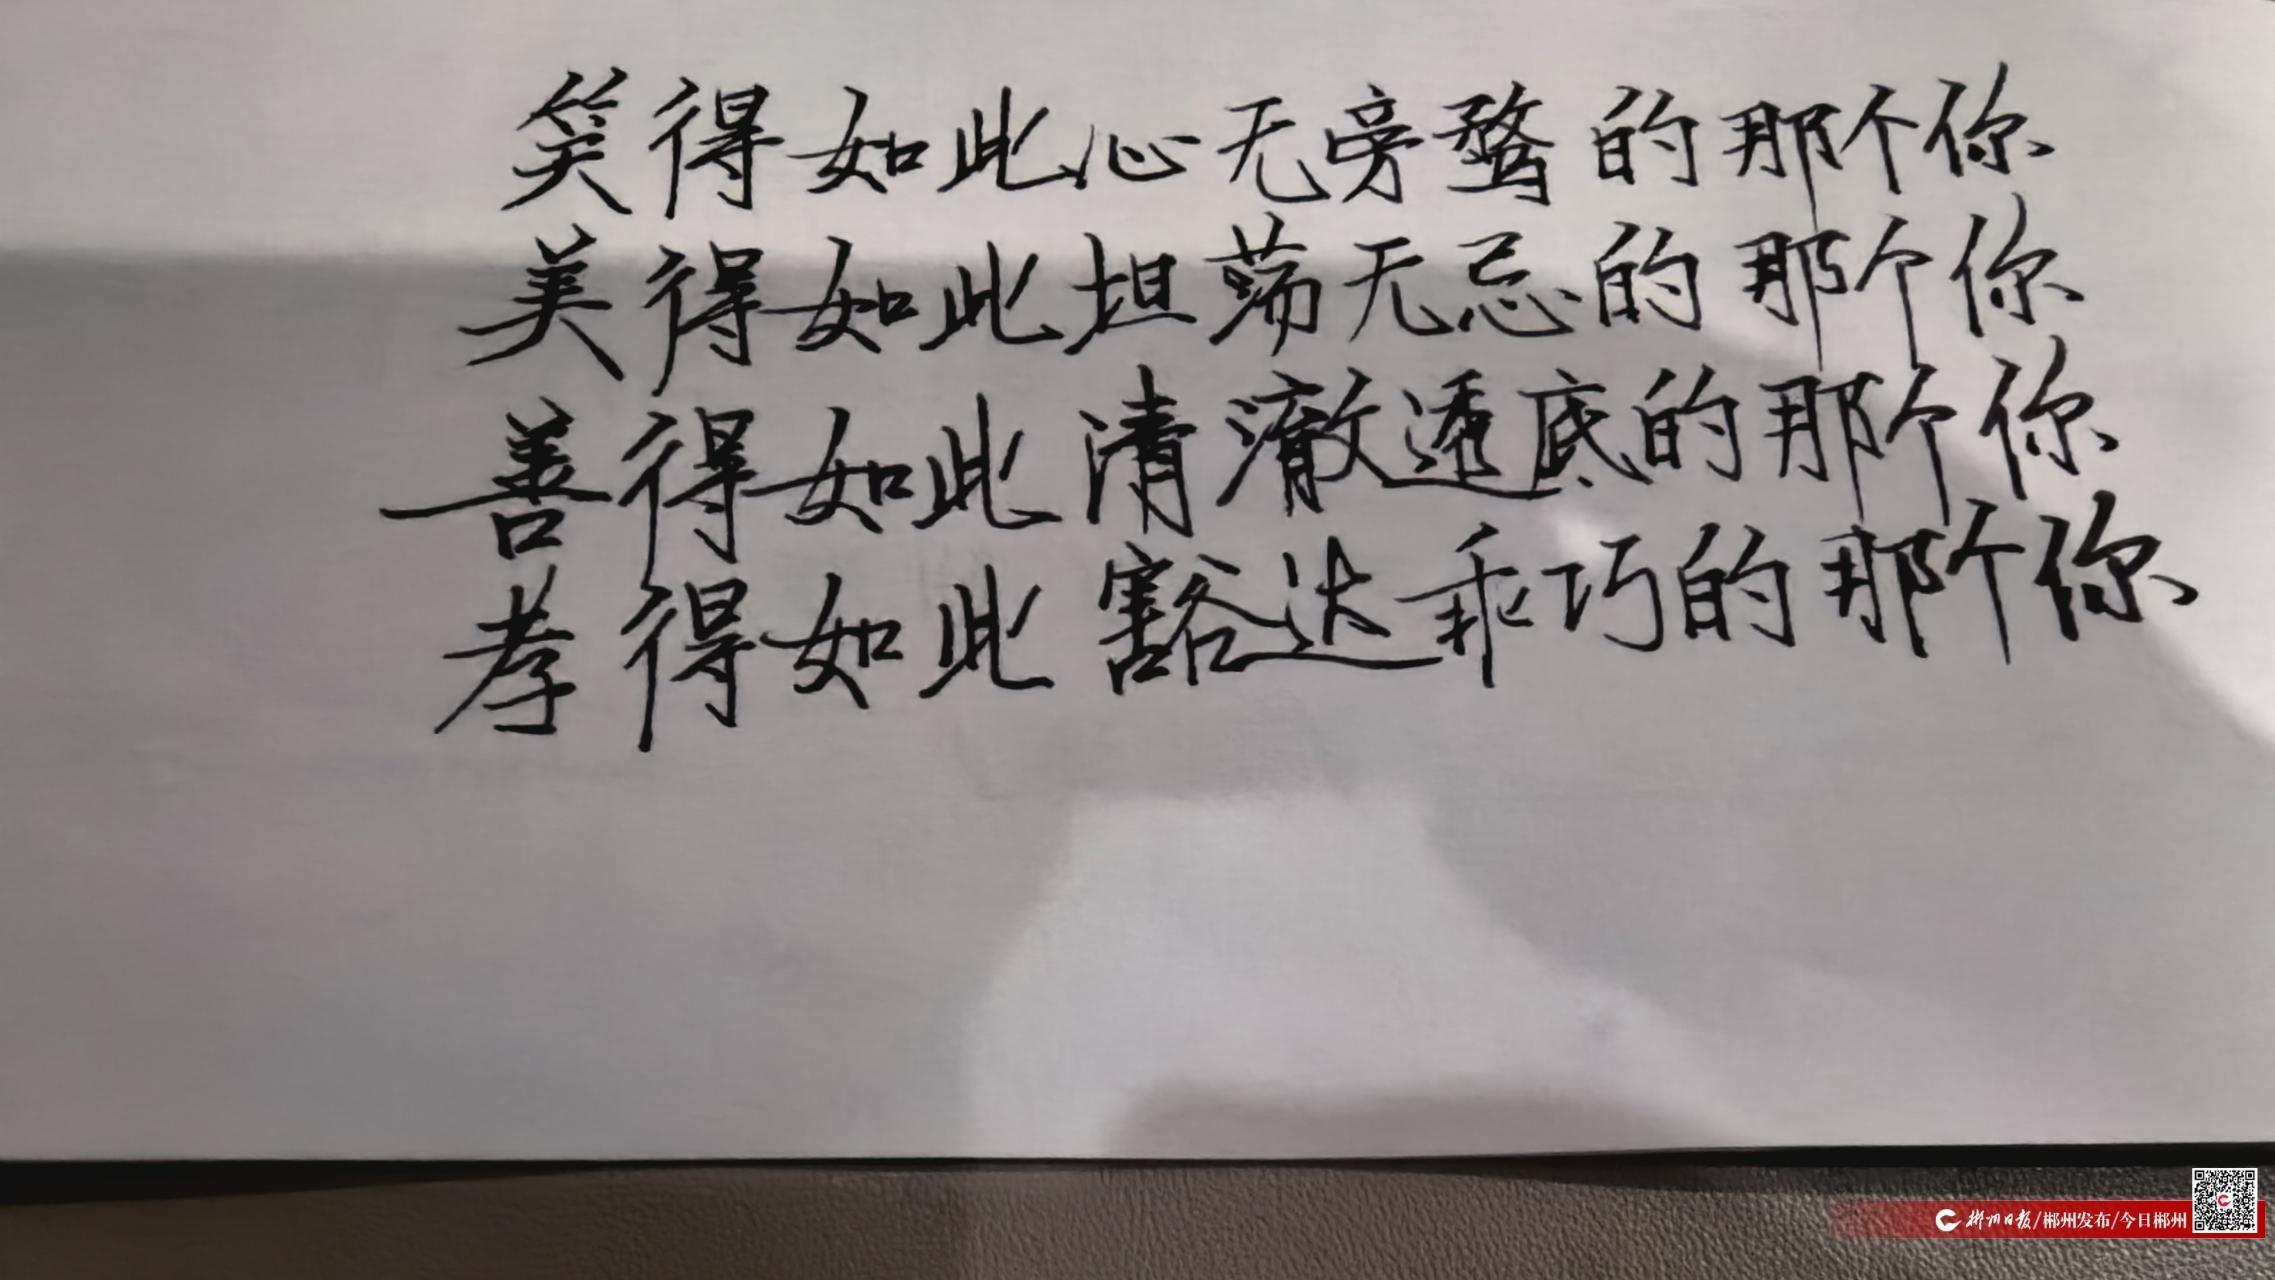 笑得如此心无旁骛的那个你
美得如此坦荡无忌的那个你
善得如此清澈透底的那个你
孝得如此豁达乖巧的那个你
郴州日报/郴州发布/今日郴州